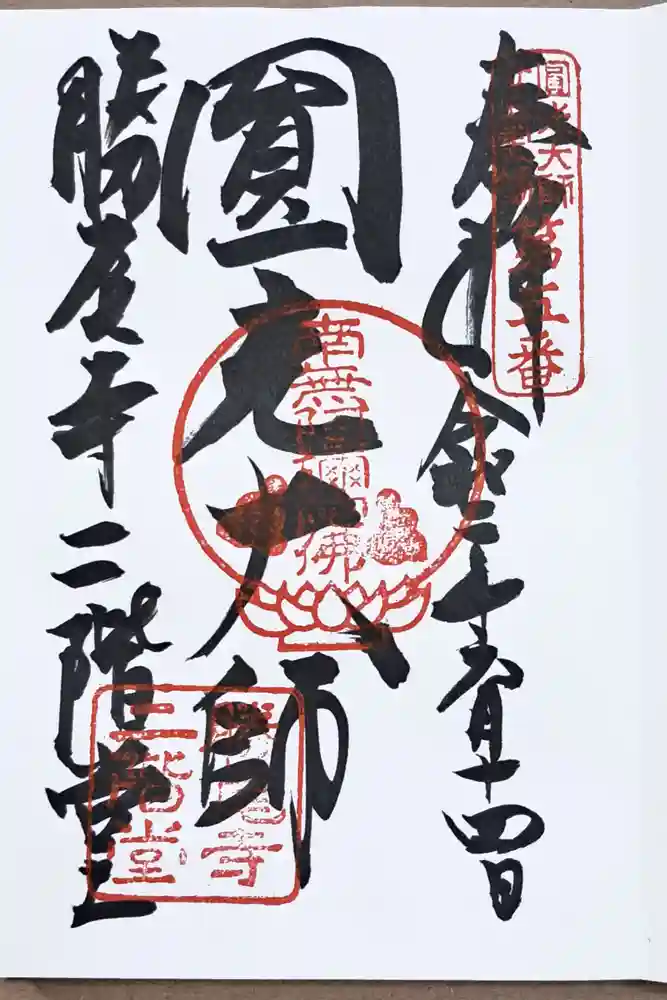 奉拝
令二年六月十四日
圓光大師
勝尾寺二階堂
圓光大師
第五番
南無阿彌陀佛
勝尾寺
二階堂